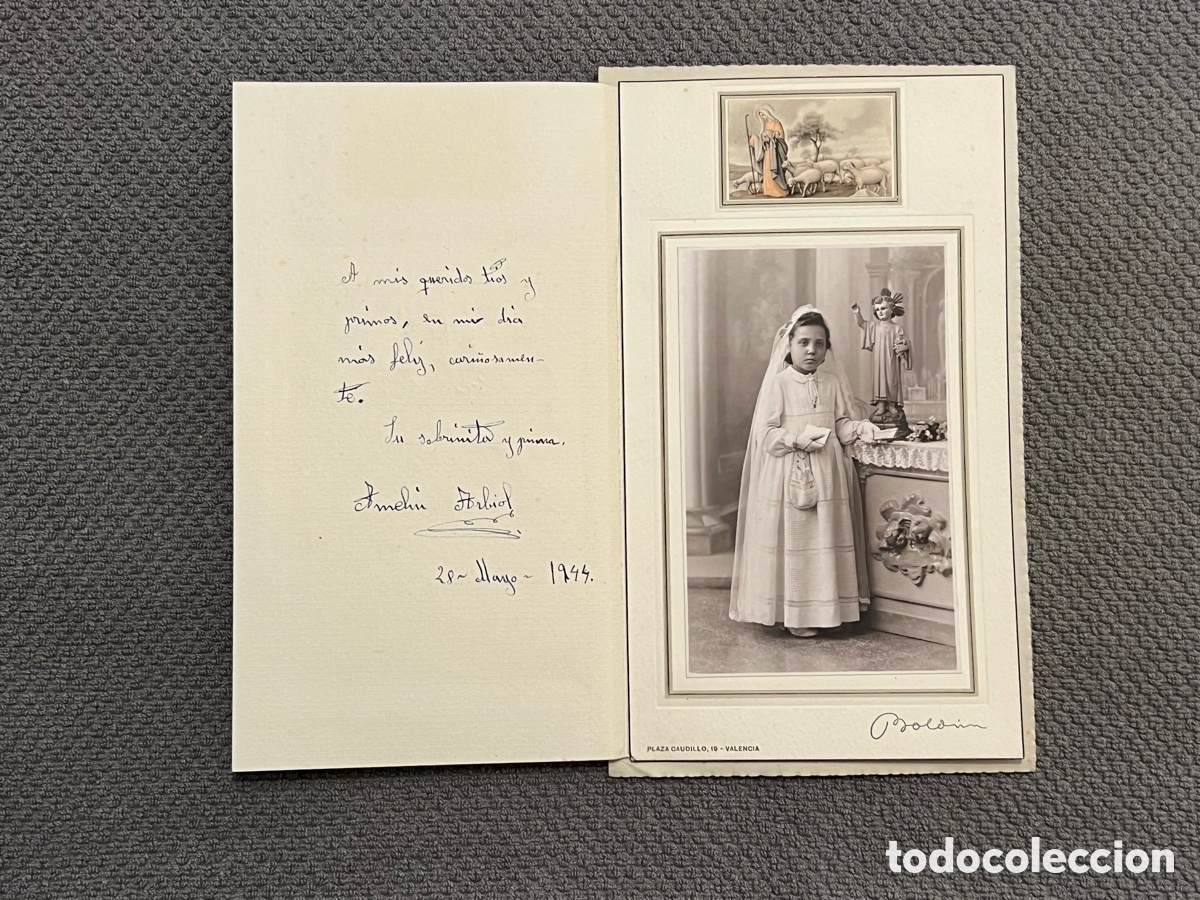 A mis queridos tios y
primos, en mi dia
más feliz, cariñosamen-
te.
Su sobrinita y prima.
Amelin Arbiol
28 - Mayo - 1944.
Boldún
PLAZA CAUDILLO, 19 - VALENCIA
todocoleccion